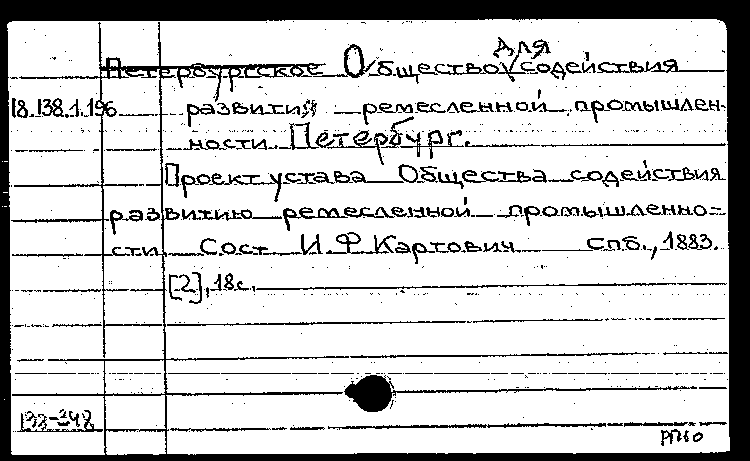 Петербургское Общество для содействия
18.138.1.196 развития ремесленной промышлен-
ности. Петербург.
Проект устава Общества содействия
развитию ремесленной промышленно-
сти. Сост. И.Ф. Картович Спб., 1883.
[2], 18 с.